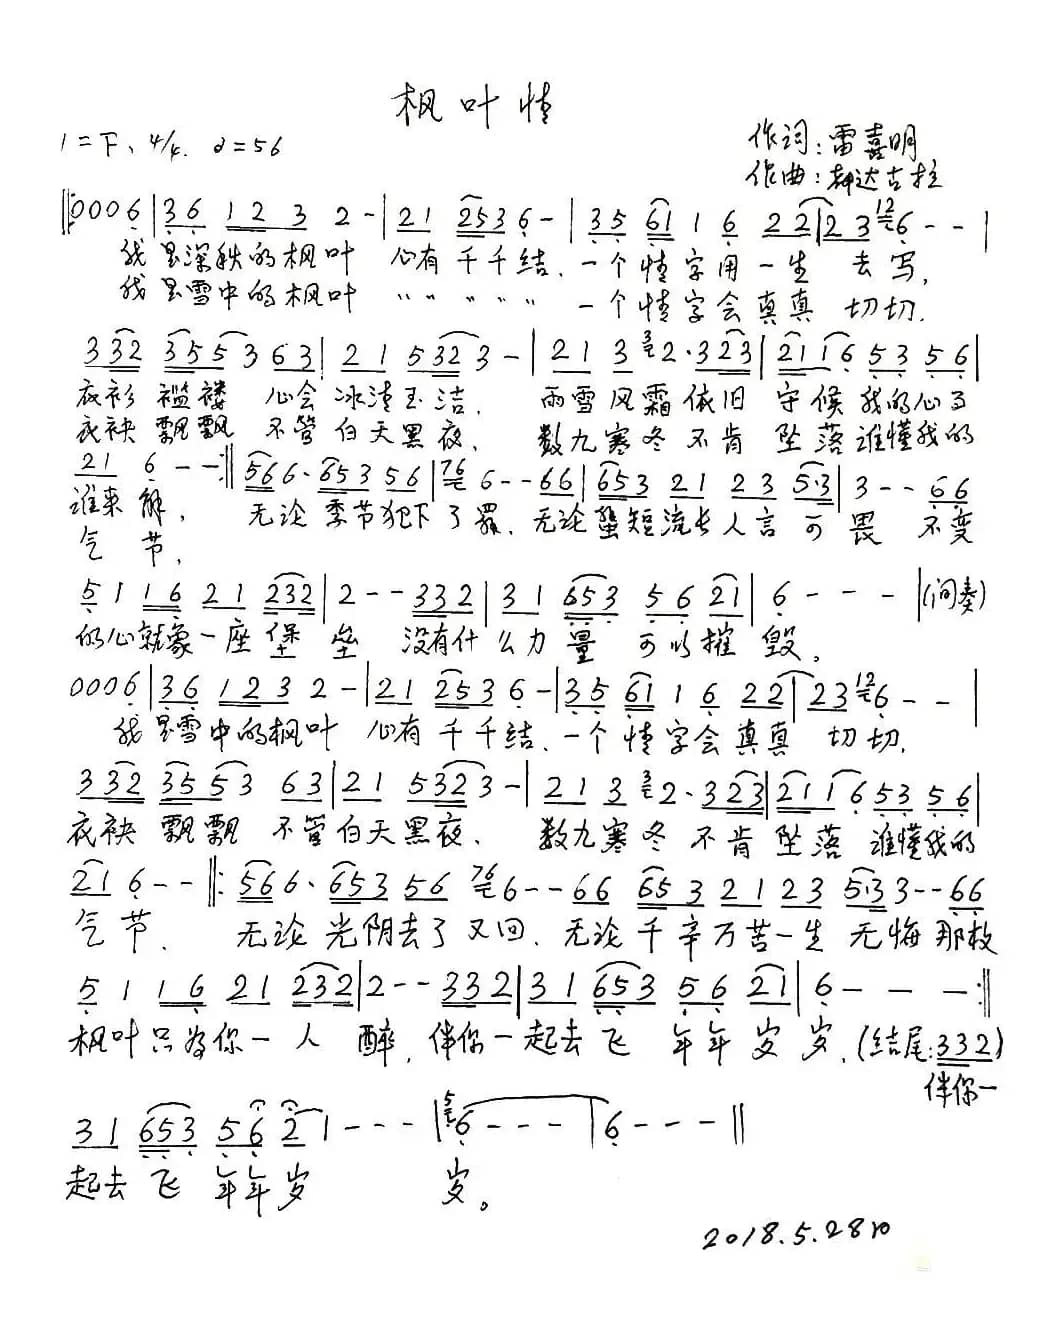 枫叶情
1=下、4/4. ♩=56
作词:雷喜明
作曲:都达古拉
‖:0006|36 123 2-|21 2536-|35 61 1 6 22|23 12 6--|
我是深秋的枫叶 心有千千结、一个情字用一生 去写,
我是雪中的枫叶 〃〃〃〃〃 一个情字会真真 切切.
332 355363|21 5323-|213 3 2·323|2116 53 56|
衣衫褴褛 心会冰清玉洁. 雨雪风霜依旧 守候我的心与
衣袂飘飘 不管白天黑夜、 数九寒冬不肯 坠落谁懂我的
21 6--:‖566·653 56|76 6--66|653 21 23 5·3|3--66
谁来解, 无论季节犯下了罪、无论蜚短流长人言可畏 不变
气节,
51 16 21 232|2--332|31 653 56 21|6---|(间奏)
的心就象一座堡垒 没有什么力量 可以摧毁。
0006|36 123 2-|21 2536-|35 61 1 6 22|23 12 6--|
我是雪中的枫叶 心有千千结、一个情字会真真 切切.
332 3553 63|21 5323-|213 3 2·323|2116 53 56|
衣袂飘飘 不管白天黑夜、 数九寒冬不肯坠落 谁懂我的
21 6--‖:566·653 56 76 6--66 653 21 23 5·33--66
气节、 无论光阴去了又回、无论千辛万苦一生无悔那枚
51 16 21 232|2--332|31 653 56 21|6---:‖
枫叶只为你一人醉,伴你一起去飞 年年岁岁、(结尾:332)
伴你一
31 653 56 2 1---|5 6---|6---‖
起去飞 年年岁 岁。
2018.5.28日